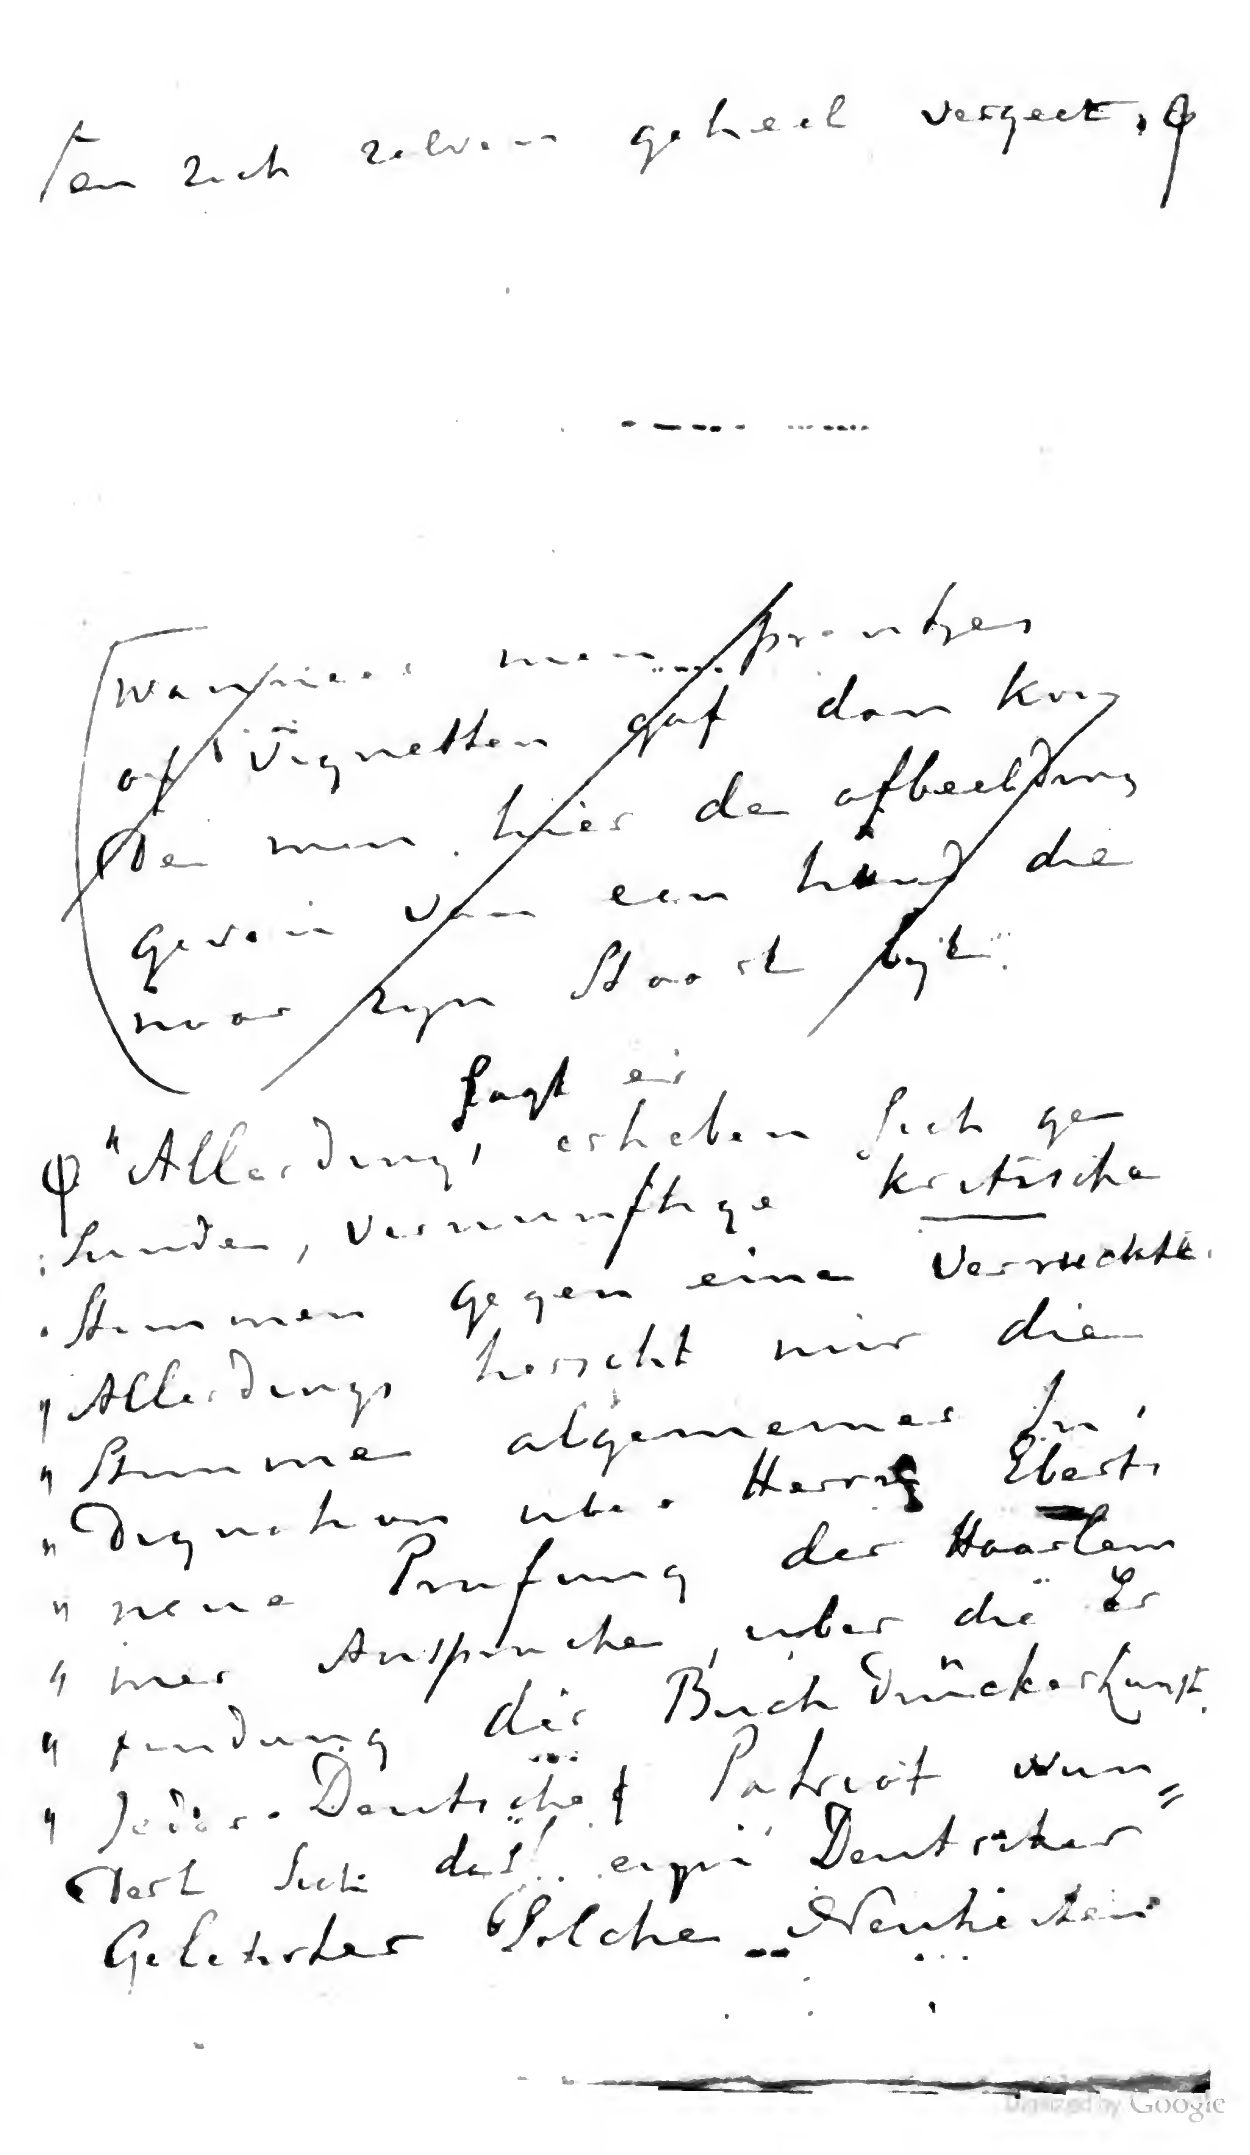 en zich zelven geheel vergeet. φ
Wanneer men prentjes
of vignetten gaf dan kon
de men hier de afbeelding
geven van een hond die
naar zijn staart bijt.
sagt er
φ "Allerdings erheben sich ge
sunde, vernunftige kritische
Stimmen gegen eine verruckte.
" Allerdings herscht nur die
" Stimme algemeiner In,
" dignation uber Herrn Eberts
" neue Prufung der Haarlem
" mer Anspruche, uber die Er
" findung der Buchdrückerkunst.
" Jeder Deutsche Patriot wun=
dert sich das ein Deutscher
Gelehrter Solche Neuheiten
Digitized by Google